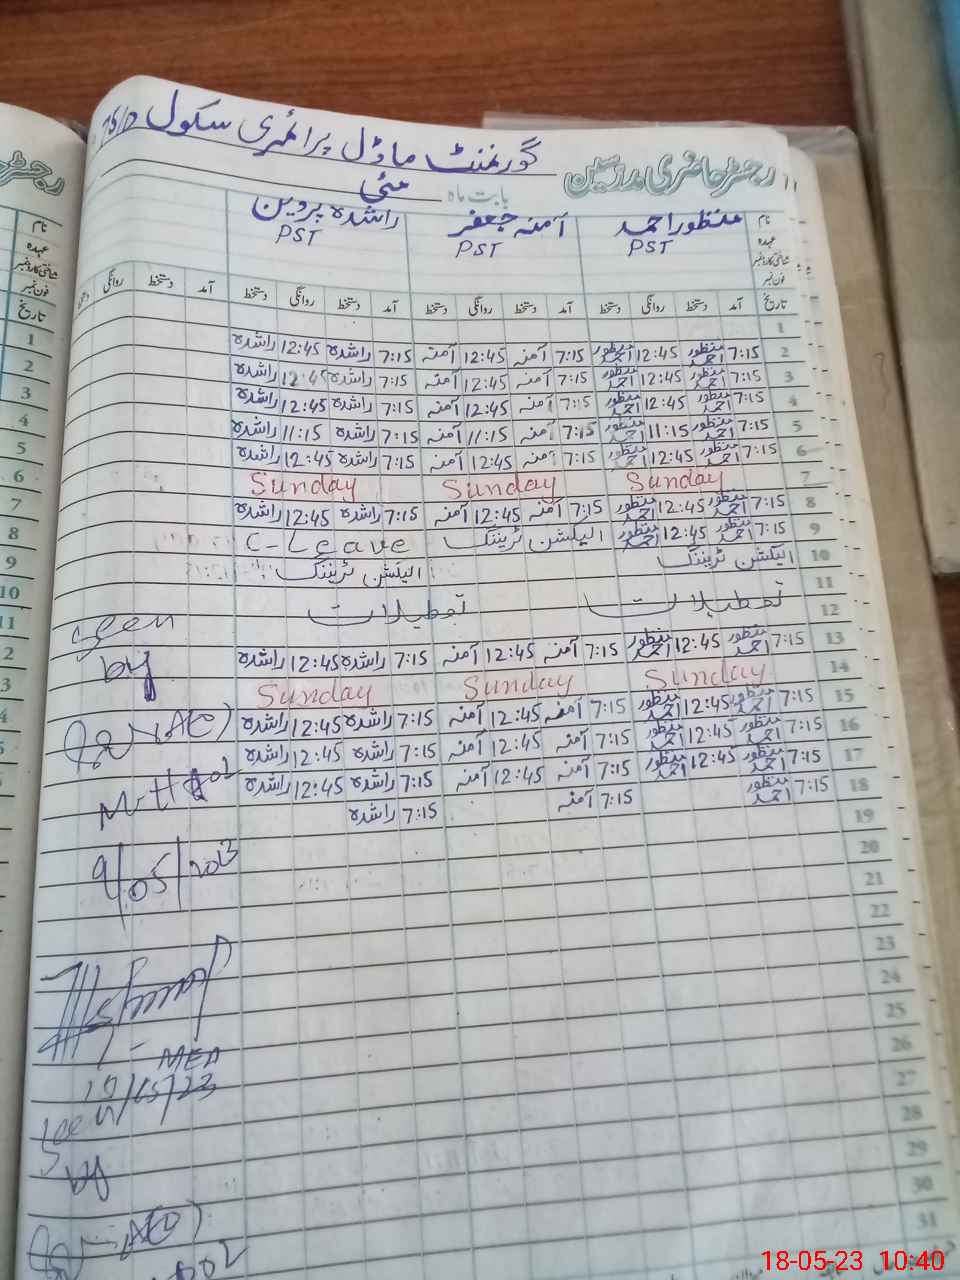 گورنمنٹ ماڈل پرائمری سکول 75/D
رجسٹر حاضری مدرسین
بابت ماہ مئی
نام منظور احمد آمنہ جعفر راشدہ پروین
عہدہ PST PST PST
شناختی کارڈ نمبر
فون نمبر
تاریخ آمد دستخط روانگی دستخط آمد دستخط روانگی دستخط آمد دستخط روانگی دستخط آمد دستخط روانگی دستخط
1
2 7:15 منظور احمد 12:45 منظور احمد 7:15 آمنہ 12:45 آمنہ 7:15 راشدہ 12:45 راشدہ
3 7:15 منظور احمد 12:45 منظور احمد 7:15 آمنہ 12:45 آمنہ 7:15 راشدہ 12:45 راشدہ
4 7:15 منظور احمد 12:45 منظور احمد 7:15 آمنہ 12:45 آمنہ 7:15 راشدہ 12:45 راشدہ
5 7:15 منظور احمد 11:15 منظور احمد 7:15 آمنہ 11:15 آمنہ 7:15 راشدہ 11:15 راشدہ
6 7:15 منظور احمد 12:45 منظور احمد 7:15 آمنہ 12:45 آمنہ 7:15 راشدہ 12:45 راشدہ
7 Sunday Sunday Sunday
8 7:15 منظور احمد 12:45 منظور احمد 7:15 آمنہ 12:45 آمنہ 7:15 راشدہ 12:45 راشدہ
9 7:15 منظور احمد 12:45 منظور احمد الیکشن ٹریننگ C-Leave
10 الیکشن ٹریننگ الیکشن ٹریننگ
11
12 تعطیلات تعطیلات
13 7:15 منظور احمد 12:45 منظور احمد 7:15 آمنہ 12:45 آمنہ 7:15 راشدہ 12:45 راشدہ
14 Sunday Sunday Sunday
15 7:15 منظور احمد 12:45 منظور احمد 7:15 آمنہ 12:45 آمنہ 7:15 راشدہ 12:45 راشدہ
16 7:15 منظور احمد 12:45 منظور احمد 7:15 آمنہ 12:45 آمنہ 7:15 راشدہ 12:45 راشدہ
17 7:15 منظور احمد 12:45 منظور احمد 7:15 آمنہ 12:45 آمنہ 7:15 راشدہ 12:45 راشدہ
18 7:15 منظور احمد 7:15 آمنہ 7:15 راشدہ
19
20
21
22
23
24
25
26
27
28
29
30
31
Seen
by
9/05/2023
MEA
by
18-05-23 10:40